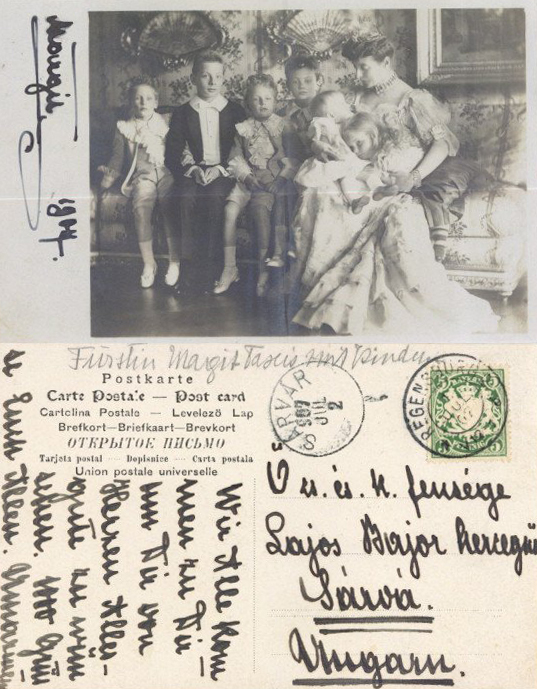 Margit
1907.
Fürstin Margit Taxis mit Kindern
Postkarte
Carte Postale — Post card
Cartolina Postale — Levelező Lap
Brefkort—Briefkaart—Brevkort
ОТКРЫТОЕ ПИСЬМО
Tarjeta postal — Dopisnice — Carta postala
Union postale universelle
SÁRVÁR
907
JUL
2
REGENSBURG
5
5
Wir Alle kom-
men zu Dir
um Dir von
Herzen Alles
gute zu wün
schen.
Ő cs. és. K. fensége
Lajos Bajor herceg
Sárvá.
Ungarn.